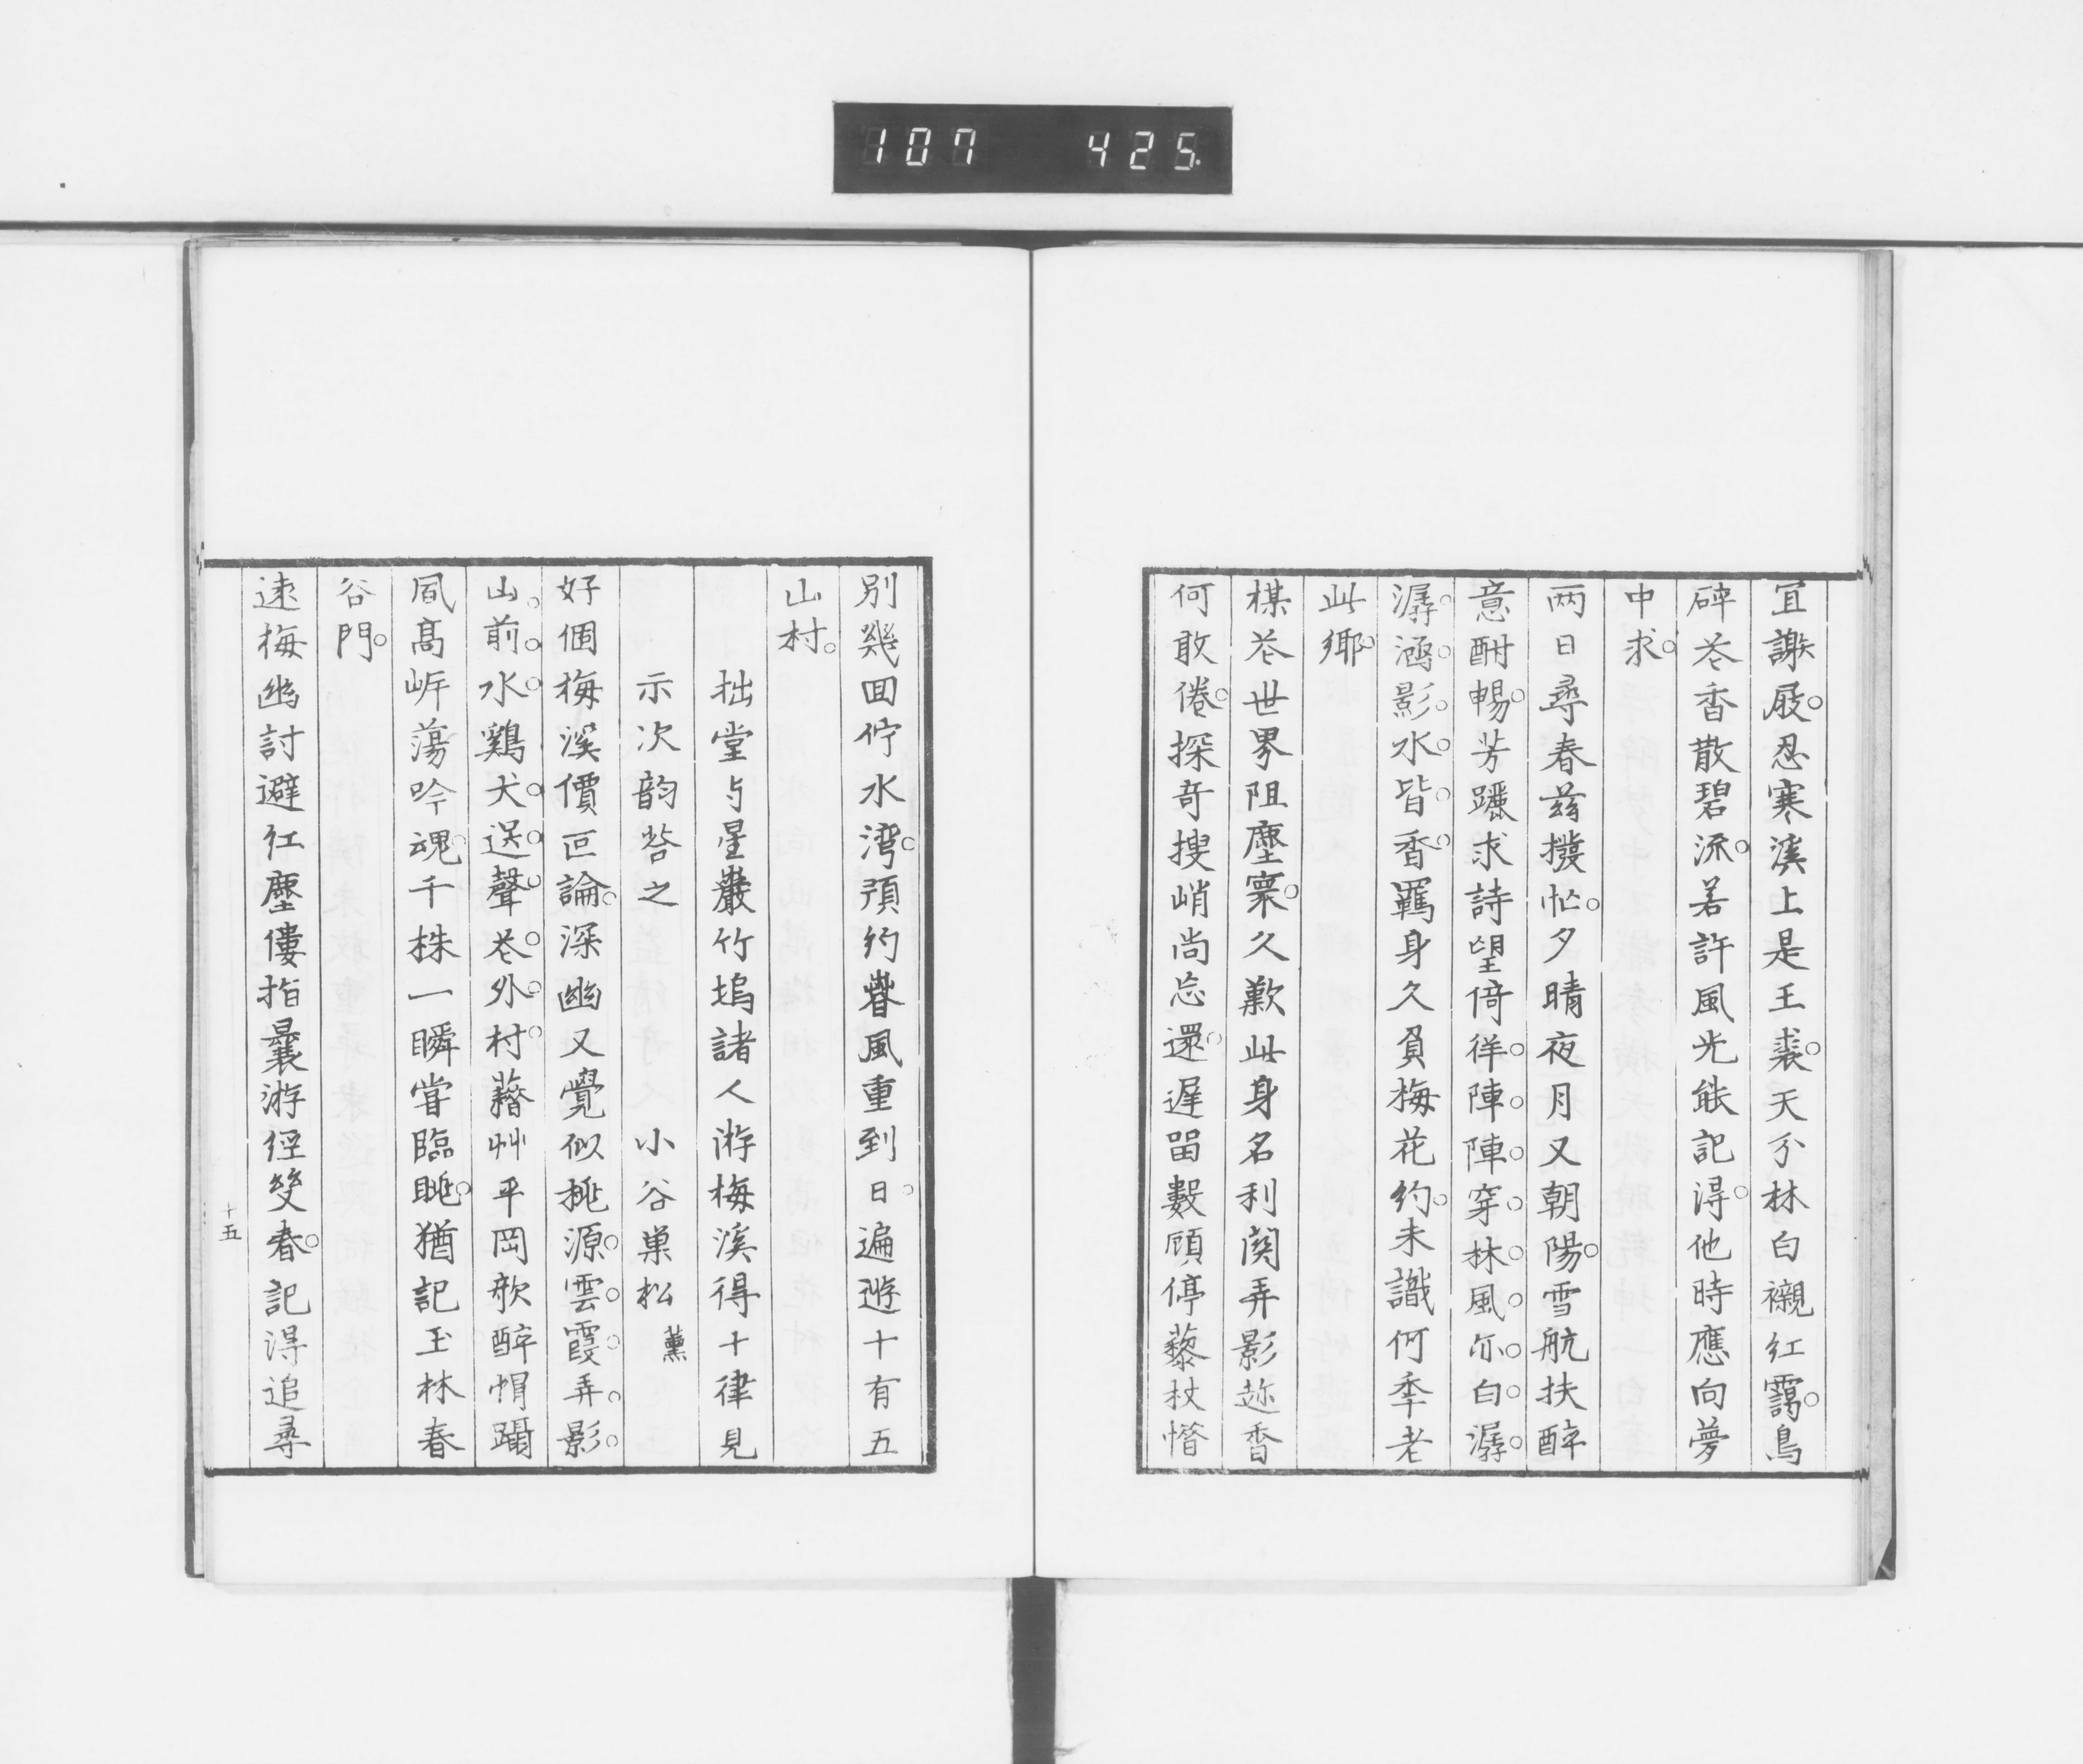 107 425
宜謝屐忍寒溪上是王裘天分林白襯紅靄鳥
碎花香散碧流若許風光能記得他時應向夢
中求
兩日尋春茲撥忙夕晴夜月又朝陽雪航扶醉
意酣暢芳躧求詩望倚徉陣陣穿林風亦白潺
潺涵影水皆香羈身久負梅花約未識何年老
此鄉
楳花世界阻塵寰久歎此身名利関弄影趂香
何敢倦探奇搜峭尚忘還遅留數顧停藜杖惜
別幾回佇水湾預約春風重到日遍遊十有五
山村
拙堂与星巖竹塢諸人游梅溪得十律見
示次韵荅之 小谷巣松 薫
好個梅溪價叵論深幽又覺似桃源雲霞弄影
山前水鷄犬送聲花外村藉艸平岡歌醉帽躡
凮高岸蕩吟魂千株一瞬甞臨眺猶記玉林春
谷門
逺梅幽討避紅塵僂指曩游経雙春記得追尋
十五